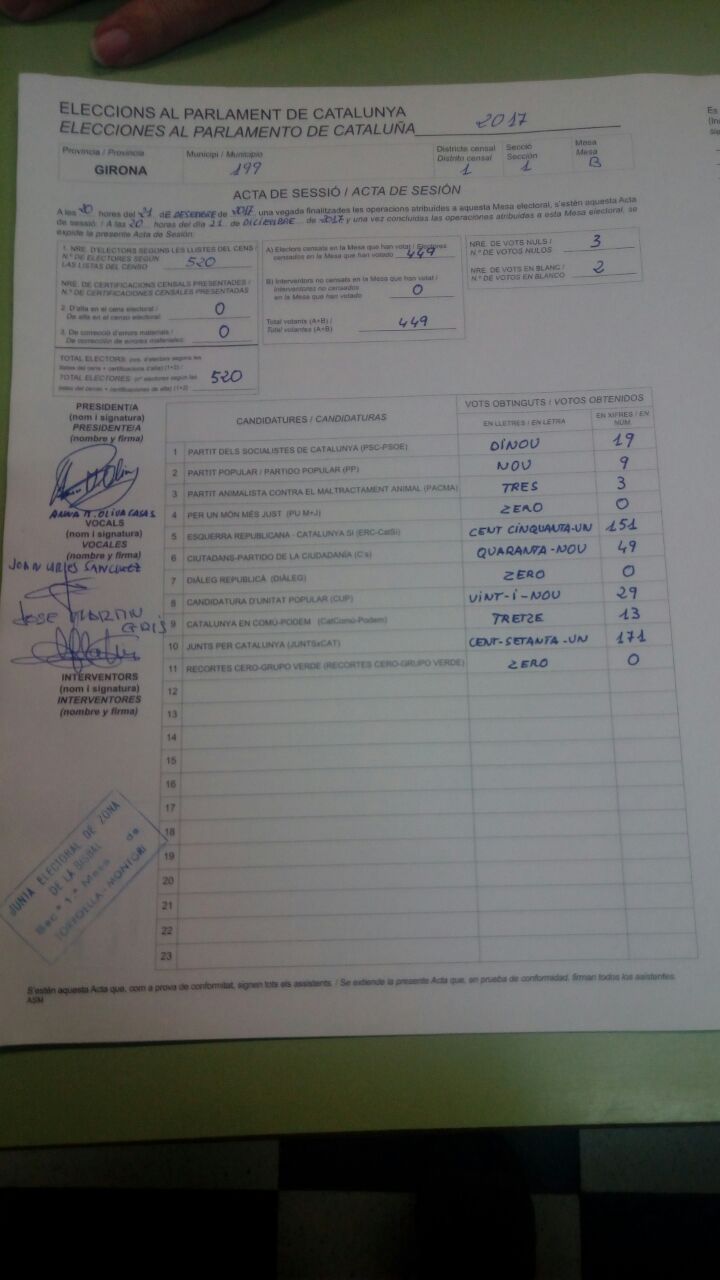 ELECCIONS AL PARLAMENT DE CATALUNYA
ELECCIONES AL PARLAMENTO DE CATALUÑA 2017
Província / Provincia
GIRONA
Municipi / Municipio
199
Districte censal
Distrito censal
1
Secció
Sección
1
Mesa
Mesa
B
ACTA DE SESSIÓ / ACTA DE SESIÓN
A les 20 hores del 21 de DESEMBRE de 2017, una vegada finalitzades les operacions atribuïdes a aquesta Mesa electoral, s'estén aquesta Acta
de sessió. / A las 20 horas del día 21 de DICIEMBRE de 2017 y una vez concluidas las operaciones atribuidas a esta Mesa electoral, se
expide la presente Acta de Sesión:
1. NRE. D'ELECTORS SEGONS LES LLISTES DEL CENS /
N.º DE ELECTORES SEGÚN
LAS LISTAS DEL CENSO 520
NRE. DE CERTIFICACIONS CENSALS PRESENTADES /
N.º DE CERTIFICACIONES CENSALES PRESENTADAS
2. D'alta en el cens electoral /
De alta en el censo electoral: 0
3. De correcció d'errors materials /
De corrección de errores materiales: 0
TOTAL ELECTORS (nre. d'electors segons les
llistes del cens + certificacions d'alta) (1+2) /
TOTAL ELECTORES (nº electores según las
listas del censo + certificaciones de alta) (1+2) 520
A) Electors censats en la Mesa que han votat / Electores
censados en la Mesa que han votado 449
B) Interventors no censats en la Mesa que han votat /
Interventores no censados
en la Mesa que han votado 0
Total votants (A+B) /
Total votantes (A+B) 449
NRE. DE VOTS NULS /
N.º DE VOTOS NULOS 3
NRE. DE VOTS EN BLANC /
N.º DE VOTOS EN BLANCO 2
PRESIDENT/A
(nom i signatura)
PRESIDENTE/A
(nombre y firma)
ANNA M. OLIVA CASAS
VOCALS
(nom i signatura)
VOCALES
(nombre y firma)
JOSE MARTIN
INTERVENTORS
(nom i signatura)
INTERVENTORES
(nombre y firma)
CANDIDATURES / CANDIDATURAS
VOTS OBTINGUTS / VOTOS OBTENIDOS
EN LLETRES / EN LETRA
EN XIFRES / EN
NÚM.
1 PARTIT DELS SOCIALISTES DE CATALUNYA (PSC-PSOE) DINOU 19
2 PARTIT POPULAR / PARTIDO POPULAR (PP) NOU 9
3 PARTIT ANIMALISTA CONTRA EL MALTRACTAMENT ANIMAL (PACMA) TRES 3
4 PER UN MÓN MÉS JUST (PU M+J) ZERO 0
5 ESQUERRA REPUBLICANA - CATALUNYA SÍ (ERC-CatSí) CENT CINQUANTA-UN 151
6 CIUTADANS-PARTIDO DE LA CIUDADANÍA (C's) QUARANTA-NOU 49
7 DIÀLEG REPUBLICÀ (DIÀLEG) ZERO 0
8 CANDIDATURA D'UNITAT POPULAR (CUP) VINT-I-NOU 29
9 CATALUNYA EN COMÚ-PODEM (CatComú-Podem) TRETZE 13
10 JUNTS PER CATALUNYA (JUNTSxCAT) CENT-SETANTA-UN 171
11 RECORTES CERO-GRUPO VERDE (RECORTES CERO-GRUPO VERDE) ZERO 0
12
13
14
15
16
17
18
19
20
21
22
23
JUNTA ELECTORAL DE ZONA
DE LA BISBAL
Sec. 1.ª Mesa de
TORROELLA - MONTGRÍ
S'estén aquesta Acta que, com a prova de conformitat, signen tots els assistents. / Se extiende la presente Acta que, en prueba de conformidad, firman todos los asistentes.
ASM